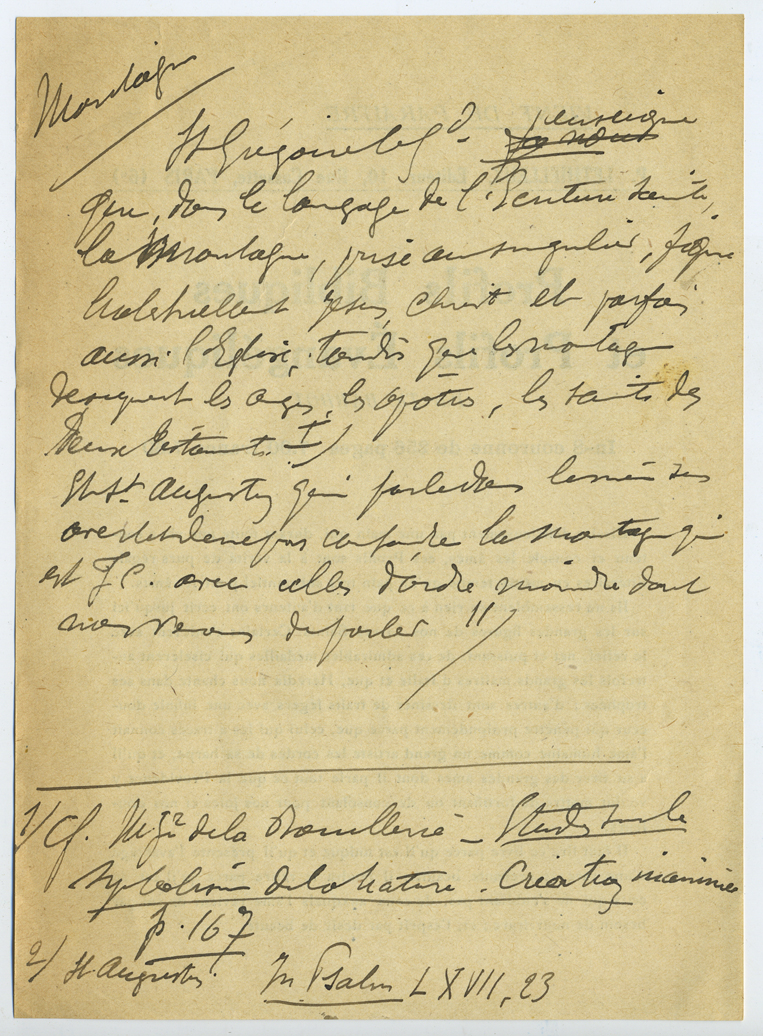 Montagne
St Grégoire le Gd - enseigne
que, dans le langage de l'Ecriture Sainte,
la Montagne, prise au singulier, figure
habituellement Jésus Christ et parfois
aussi l'Eglise, tandis que les montagnes
les anges, les apôtres, les saints des
deux Testaments. I)
Et St Augustin qui parle dans le même sens
avertit de ne pas confondre la montagne qui
est J.C. avec celles d'ordre moindre dont
nous venons de parler II
1/ Cf. Mgr de la Bouillerie - Etudes sur le
Symbolisme de la Nature - Création inanimée
p. 167
2/ St Augustin. In Psalm LXVII, 23